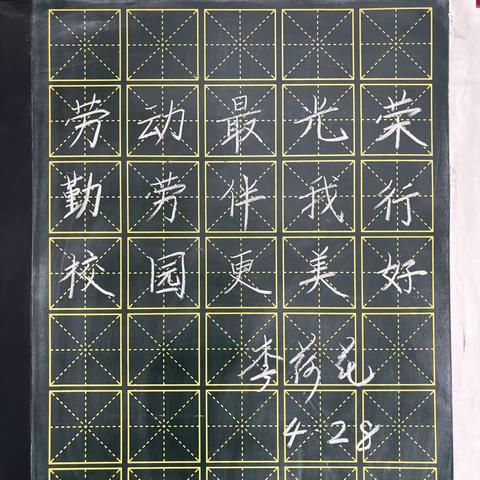 劳动最光荣
勤劳伴我行
校园更美好
李荷花
4 28